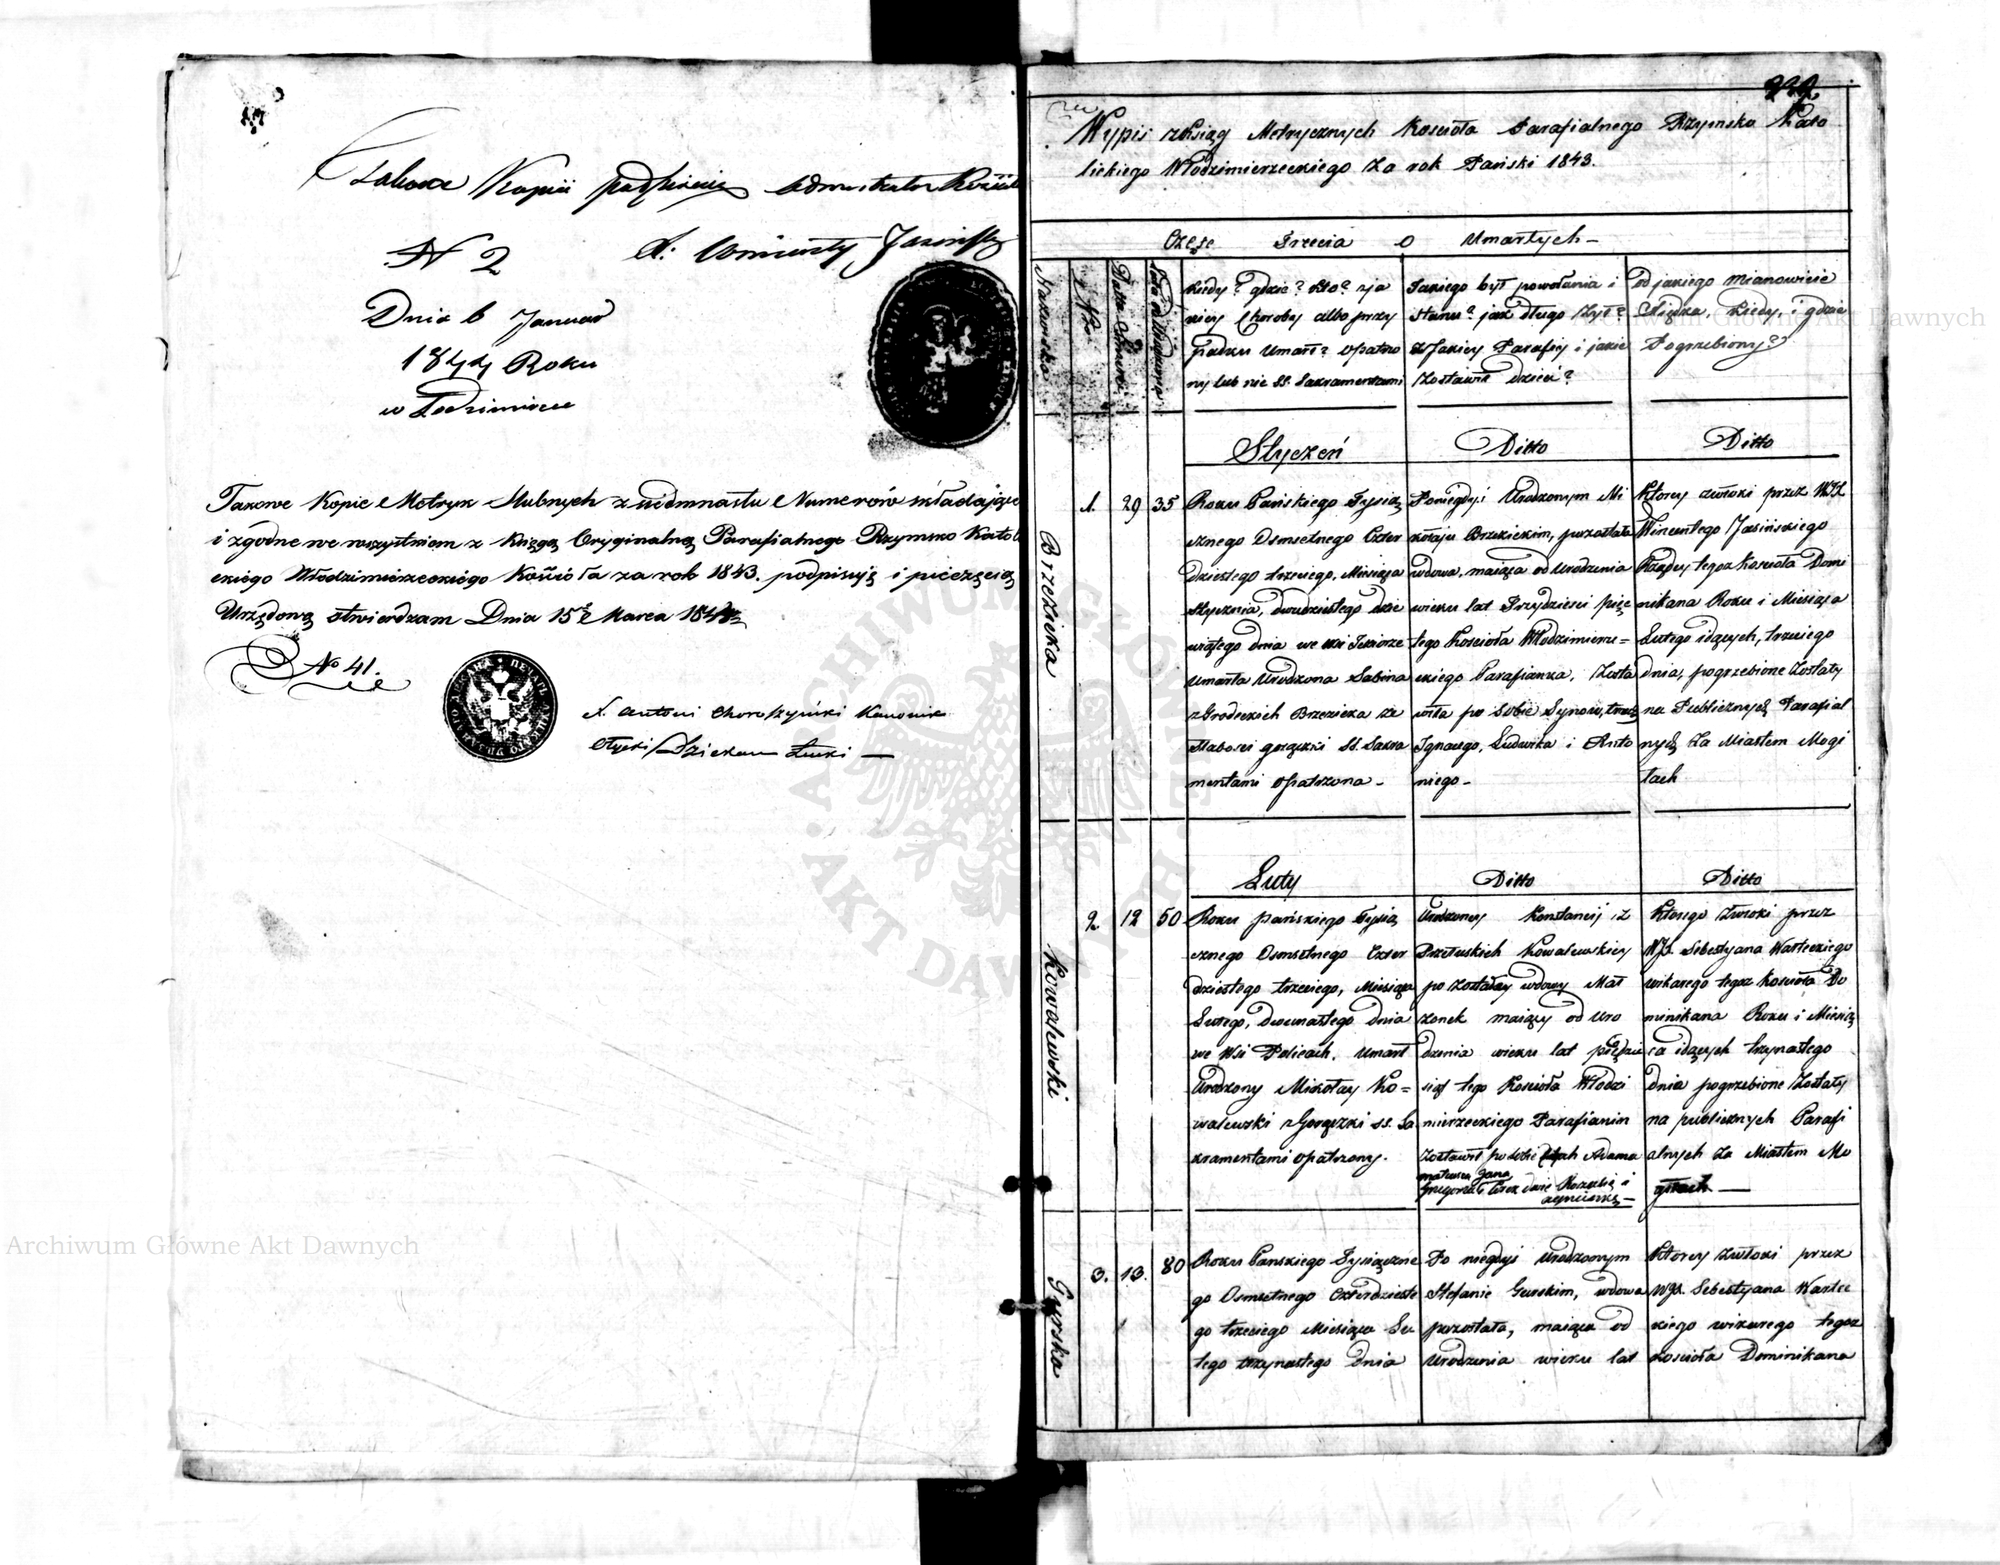 Kopii Administrator
N 2
X: Wincenty Jasiński
Dnia 6 Januar
1844 Roku
w
Takowe Kopie Metryk Slubnych z siedmnastu Numerów składające
i zgodne we wszystkiem z Księgą Oryginalną Parafialnego Rzymsko Kato
ckiego Włodzimierzeckiego Kościoła za rok 1843. podpisują i pieczęcią
Urzędową stwierdzam Dnia 15 Marca 1844
No 41.
X. Antoni Choroszyński Kanonik
Ołycki Dziekan Łucki —
Wypis z Ksiąg Metrycznych Kościoła Parafialnego Rzymsko Kato
lickiego Włodzimierzeckiego Za rok Pański 1843.
Częsc Trzecia o Umarłych —
Nazwiska
Lata
Kiedy? gdzie? kto? z ja
kiey Choroby albo przy
padku Umarł? Opatrzo
ny lub nie SS. Sakramentami
Jakiego był powołania i
Stanu? jak długo Żył?
z Jakiey Parafiy i jakie
Zostawił dzieci?
Od jakiego mianowicie
Xiędza, kiedy, i gdzie
Pogrzebiony?
Styczeń
Ditto
Ditto
Brzezicka
1. 29 35
Roku Pańskiego Tysią
cznego Osmsetnego Czter
dziestego trzeciego, Miesiąca
Stycznia, dwudziestego dzie
wiątego dnia we wsi
Umarła Urodzona Sabina
z Grodzkich Brzezicka ze
Słabosci gorączki SS. Sakra
mentami Opatrzona -
Poniegdyś Urodzonym Mi
kołaju Brzezickim, pozostała
wdowa, maiąca od Urodzenia
wieku lat Trzydziesci pięc
tego Kościoła Włodzimierze=
ckiego Parafianka, Zosta
wiła po Sobie Synow,
Ignacego, Ludwika i Anto
niego -
Ktorey zwłoki przez WJX
Wincentego Jasińskiego
Rządcy tegoz Kościoła Domi
nikana Roku i Miesiąca
Lutego idących, trzeciego
dnia, pogrzebione Zostały
na Publicznych Parafial
nych Za Miastem Mogi
łach
Luty
Ditto
Ditto
Kowalewski
2. 12 50
Roku pańskiego Tysią
cznego Osmsetnego Czter
dziestego trzeciego, Miesiąca
Lutego, Dwunastego dnia
we Wsi Policach, Umarł
Urodzony Mikołay Ko=
walewski z Gorączki SS. Sa
kramentami Opatrzony.
Urodzoney Konstancij z
Kowalewskiey
pozostałey wdowy Mał
żonek maiący od Uro
dzenia wieku lat pięcdzie
siąt tego Kościoła Włodzi
mierzeckiego Parafianin
Zostawił po Sobie Adama
Mateusza Jana
Grzegorza teraz dwie Rozalią i
—
Ktorego Zwłoki przez
WJX. Sebestyana Warteckiego
wikarego tegoz Kościoła Do
minikana Roku i Miesią
ca idących trzynastego
dnia pogrzebione Zostały
na publicznych Parafi
alnych Za Miastem Mo
giłach —
Gurska
3. 13. 80
Roku Panskiego Tysiączne
go Osmsetnego Czterdzieste
go trzeciego Miesiąca Lu
tego trzynastego dnia
Po niegdyś Urodzonym
Stefanie Gurskim, wdowa
pozostała, maiąca od
Urodzenia wieku lat
Ktorey Zwłoki przez
WJX. Sebestyana Wartec
kiego wikarego tegoz
Kościoła Dominikana
Archiwum Główne Akt Dawnych
Archiwum Główne Akt Dawnych
ARCHIWUM GŁÓWNE AKT DAWNYCH